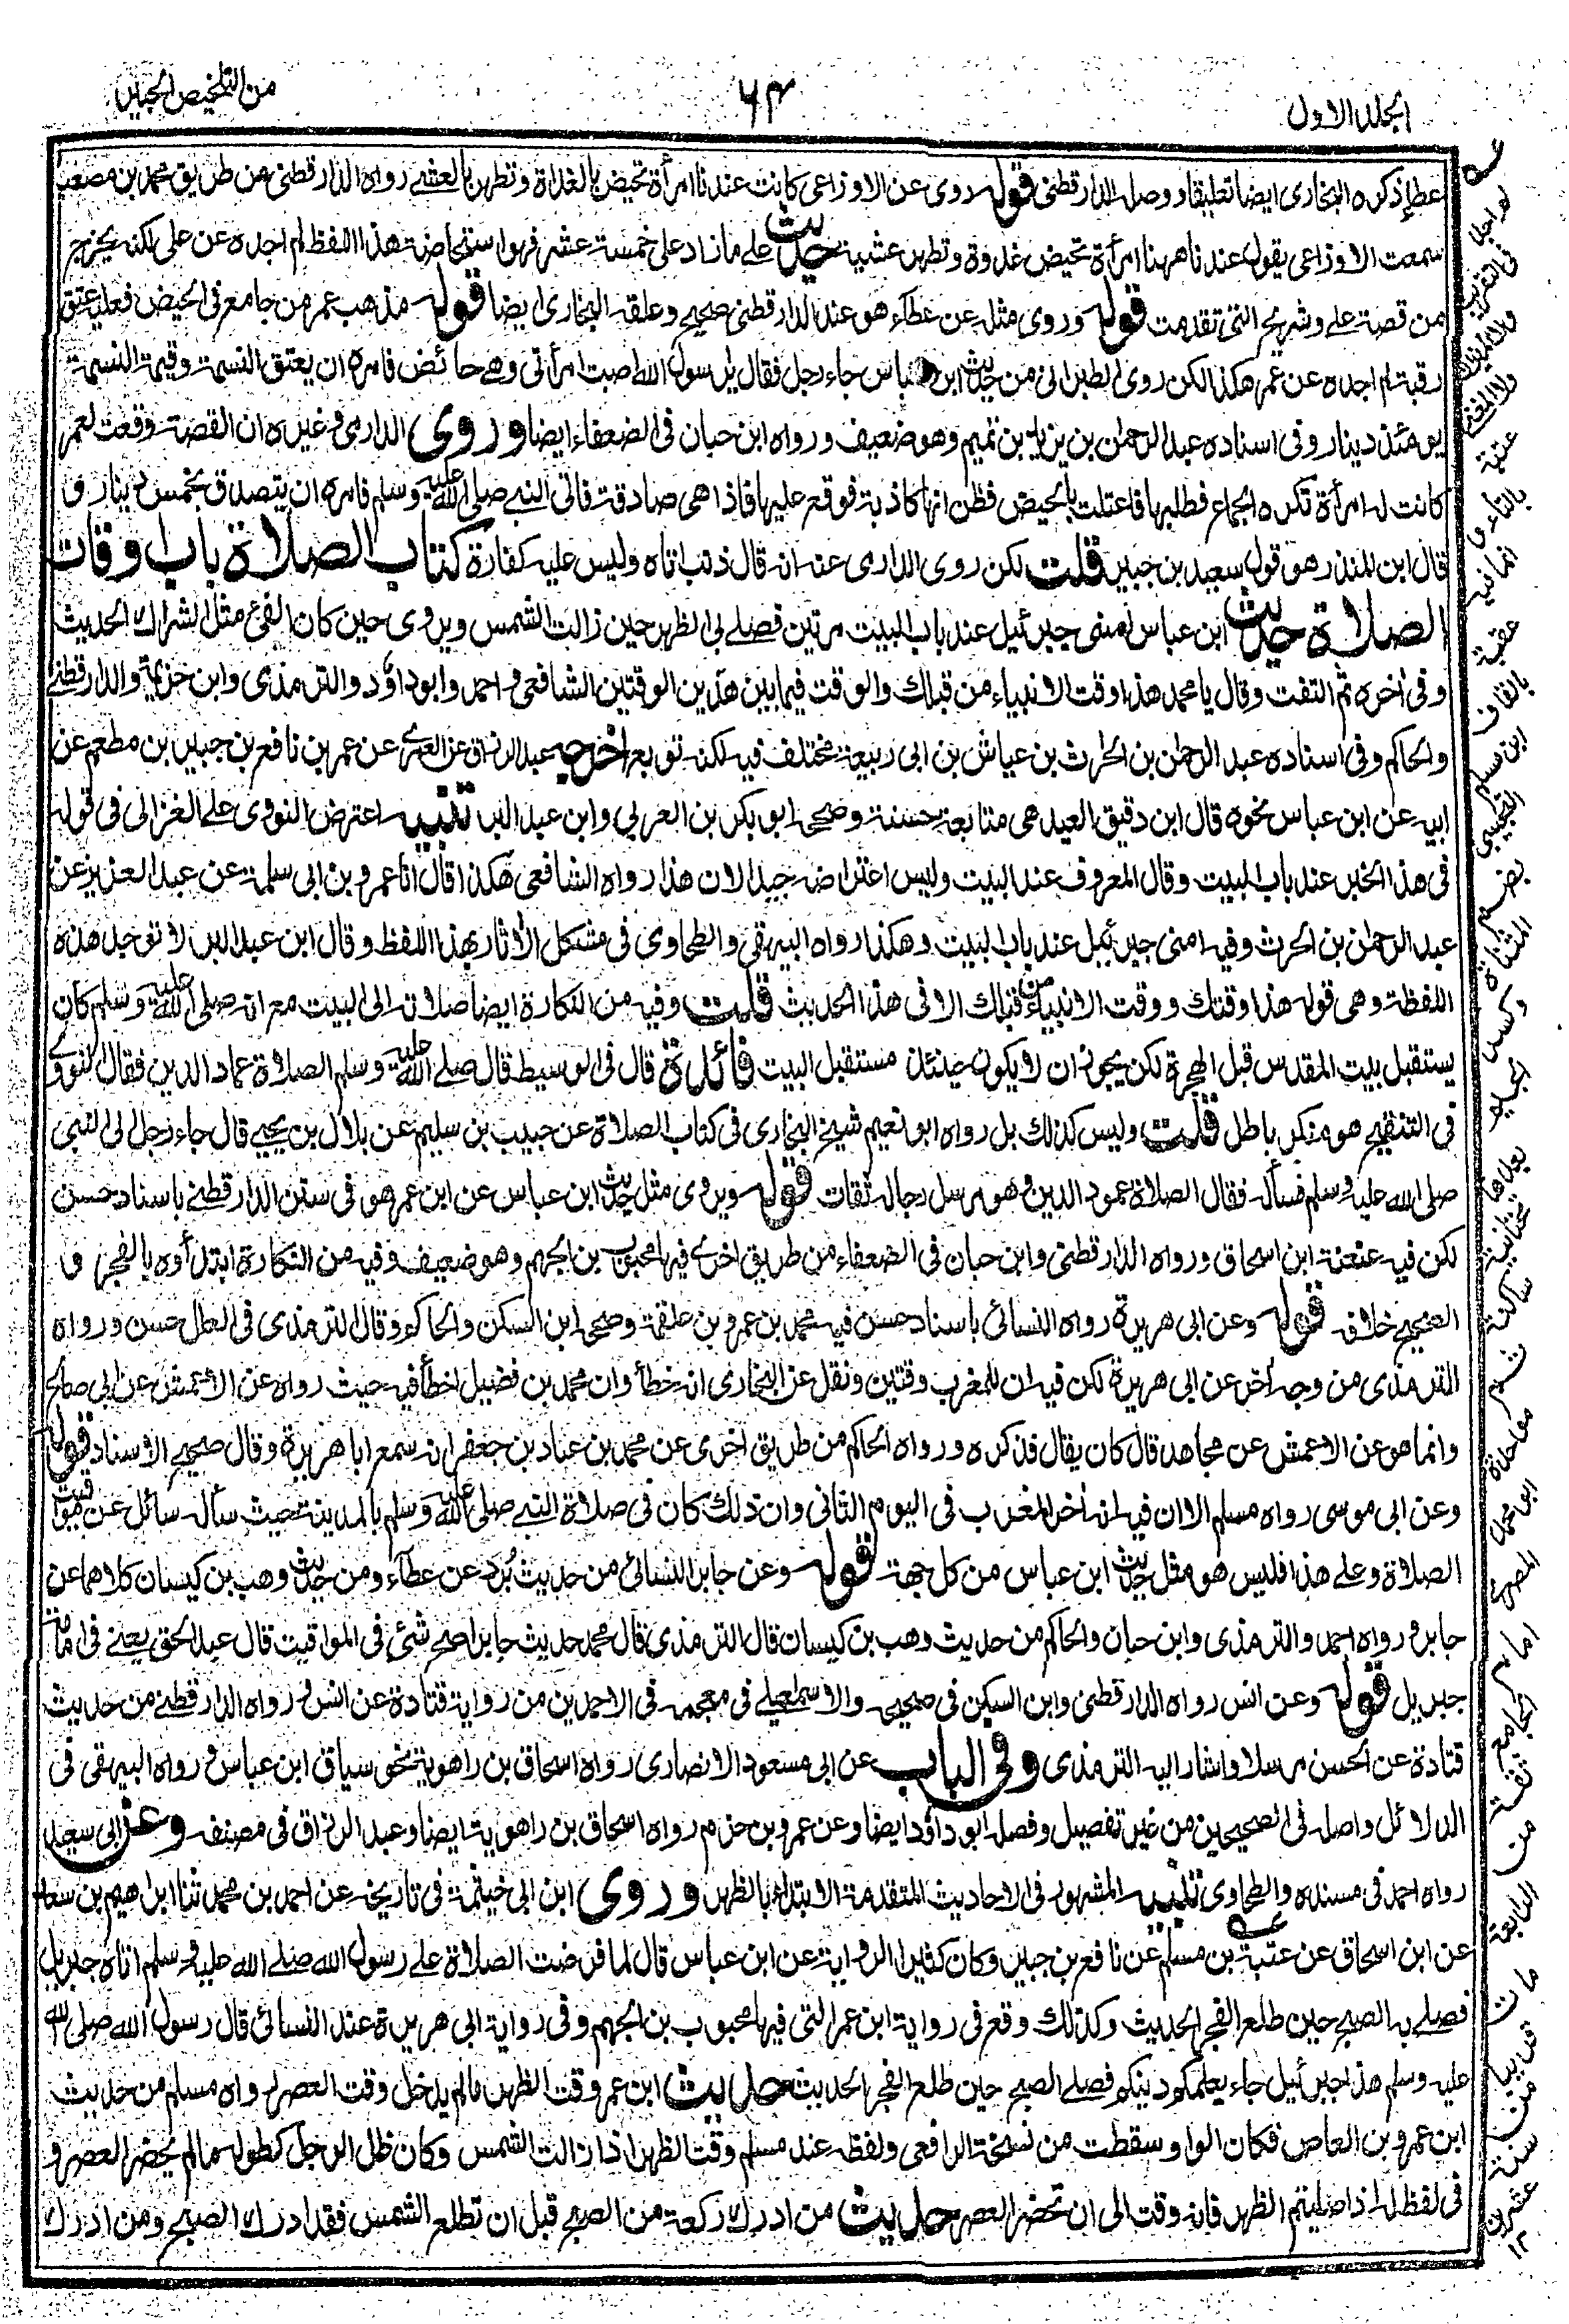 الجلد الاول
٦٣
من التلخيص الحبير
عطاء ذكره البخارى ايضا تعليقا ووصله الدارقطنى قوله روى عن الاوزاعى كانت عندنا امرأة تحيض بالغداة وتطهر بالعشى رواه الدارقطنى من طريق محمد بن مصعب
سمعت الاوزاعى يقول عندنا ههنا امرأة تحيض غدوة وتطهر عشية حديث على ما زاد على خمسة عشر فهو استحاضة هذا اللفظ لم اجده عن على لكنه يخرج
من قصة على وشريح التى تقدمت قوله وروى مثله عن عطاء هو عند الدارقطنى صحيح وعلقه البخارى ايضا قوله مذهب عمر من جامع فى الحيض فعليه عتق
رقبة لم اجده عن عمر هكذا لكن روى الطبرانى من حديث ابن عباس جاء رجل فقال يا رسول الله اصبت امرأتى وهى حائض فامره ان يعتق النسمة وقيمة النسمة
يومئذ دينار وفى اسناده عبد الرحمن بن يزيد بن تميم وهو ضعيف ورواه ابن حبان فى الضعفاء ايضا وروى الدارمى وغيره ان القصة وقعت لعمر
كانت له امرأة تكره الجماع فطلبها فاعتلت بالحيض فظن انها كاذبة فوقع عليها فاذا هى صادقة فاتى النبى صلى الله عليه وسلم فامره ان يتصدق بخمس دينار و
قال ابن المنذر هو قول سعيد بن جبير قلت لكن روى الدارمى عنه انه قال ذنب اتاه وليس عليه كفارة كتاب الصلاة باب اوقات
الصلاة حديث ابن عباس امنى جبرئيل عند باب البيت مرتين فصلى بى الظهر حين زالت الشمس ويروى حين كان الفئ مثل الشراك الحديث
وفى اخره ثم التفت وقال يا محمد هذا وقت الانبياء من قبلك والوقت فيما بين هذين الوقتين الشافعى واحمد وابو داؤد والترمذى وابن خزيمة والدارقطنى
والحاكم وفى اسناده عبد الرحمن بن الحرث بن عياش بن ابى ربيعة مختلف فيه لكنه توبع اخرجه عبد الرزاق عن العمرى عن عمر بن نافع بن جبير بن مطعم عن
ابيه عن ابن عباس نحوه قال ابن دقيق العيد هى متابعة حسنة وصححه ابو بكر بن العربى وابن عبد البر تنبيه اعترض النووى على الغزالى فى قوله
فى هذا الخبر عند باب البيت وقال المعروف عند البيت وليس اعتراضه جيدا لان هذا رواه الشافعى هكذا قال انا عمرو بن ابى سلمة عن عبد العزيز عن
عبد الرحمن بن الحرث وفيه امنى جبرئيل عند باب البيت وهكذا رواه البيهقى والطحاوى فى مشكل الآثار بهذا اللفظ وقال ابن عبد البر لا توجد هذه
اللفظة وهى قوله هذا وقتك ووقت الانبياء من قبلك الا فى هذا الحديث قلت وفيه من النكارة ايضا صلاته الى البيت مع انه صلى الله عليه وسلم كان
يستقبل بيت المقدس قبل الهجرة لكن يجوز ان لا يكون حينئذ مستقبل البيت فائدة قال فى الوسيط قال صلى الله عليه وسلم الصلاة عماد الدين فقال النووى
فى التنقيح هو منكر باطل قلت وليس كذلك بل رواه ابو نعيم شيخ البخارى فى كتاب الصلاة عن حبيب بن سليم عن بلال بن يحيى قال جاء رجل الى النبى
صلى الله عليه وسلم فسأله فقال الصلاة عمود الدين وهو مرسل رجاله ثقات قوله ويروى مثل حديث ابن عباس عن ابن عمر هو فى سنن الدارقطنى باسناد حسن
لكن فيه عنعنة ابن اسحاق ورواه الدارقطنى وابن حبان فى الضعفاء من طريق اخرى فيها محبوب بن الجهم وهو ضعيف وفيه من النكارة ابتداؤه بالفجر و
الصحيح خلافه قوله وعن ابى هريرة رواه النسائى باسناد حسن فيه محمد بن عمرو بن علقمة وصححه ابن السكن والحاكم وقال الترمذى فى العلل حسن ورواه
الترمذى من وجه آخر عن ابى هريرة لكن فيه ان للمغرب وقتين ونقل عن البخارى انه خطأ وان محمد بن فضيل اخطأ فيه حيث رواه عن الاعمش عن ابى صالح
وانما هو عن الاعمش عن مجاهد قال كان يقال فذكره ورواه الحاكم من طريق اخرى عن محمد بن عباد بن جعفر انه سمع ابا هريرة وقال صحيح الاسناد قوله
وعن ابى موسى رواه مسلم الا ان فيه انه اخر المغرب فى اليوم الثانى وان ذلك كان فى صلاة النبى صلى الله عليه وسلم بالمدينة حيث سأله سائل عن مواقيت
الصلاة وعلى هذا فليس هو مثل حديث ابن عباس من كل جهة قوله وعن جابر النسائى من حديث بُرد عن عطاء ومن حديث وهب بن كيسان كلاهما عن
جابر ورواه احمد والترمذى وابن حبان والحاكم من حديث وهب بن كيسان قال الترمذى قال محمد حديث جابر اصح شئ فى المواقيت قال عبد الحق يعنى فى امامة
جبريل قوله وعن انس رواه الدارقطنى وابن السكن فى صحيحه والاسمعيلى فى معجمه فى الاحمدين من رواية قتادة عن انس ورواه الدارقطنى من حديث
قتادة عن الحسن مرسلا واشار اليه الترمذى وفى الباب عن ابى مسعود الانصارى رواه اسحاق بن راهوية نحو سياق ابن عباس ورواه البيهقى فى
الدلائل واصله فى الصحيحين من غير تفصيل وفصله ابو داؤد ايضا وعن عمرو بن حزم رواه اسحاق بن راهوية ايضا وعبد الرزاق فى مصنفه وعن ابى سعيد
رواه احمد فى مسنده والطحاوى تنبيه المشهور فى الاحاديث المتقدمة الابتداء بالظهر وروى ابن ابى خيثمة فى تاريخه عن احمد بن محمد ثنا ابراهيم بن سعد
عن ابن اسحاق عن عتبة بن مسلم عن نافع بن جبير وكان كثير الرواية عن ابن عباس قال لما فرضت الصلاة على رسول الله صلى الله عليه وسلم اتاه جبريل
فصلى به الصبح حين طلع الفجر الحديث وكذلك وقع فى رواية ابن عمر التى فيها محبوب بن الجهم وفى رواية ابى هريرة عند النسائى قال رسول الله صلى الله
عليه وسلم هذا جبرئيل جاء يعلمكم دينكم فصلى الصبح حين طلع الفجر الحديث حديث ابن عمر وقت الظهر ما لم يدخل وقت العصر رواه مسلم من حديث
ابن عمرو بن العاص فكان الواو سقطت من نسخة الرافعى ولفظه عند مسلم وقت الظهر اذا زالت الشمس وكان ظل الرجل كطوله ما لم يحضر العصر و
فى لفظ له اذا صليتم الظهر فانه وقت الى ان تحضر العصر حديث من ادرك ركعة من الصبح قبل ان تطلع الشمس فقد ادرك الصبح ومن ادرك
عه
لم اجد
فى التقريب
عتبة
بالتاء
انما فيه
عقبة
بالقاف
ابن مسلم
التجيبى
بضم
المثناة
وكسر
الجيم
بعدها
تحتانية
ساكنة
ثم
موحدة
ابو محمد
المصرى
امام
الجامع
ثقة
من
الرابعة
مات
قريبا
من
سنة
عشرين
١٢